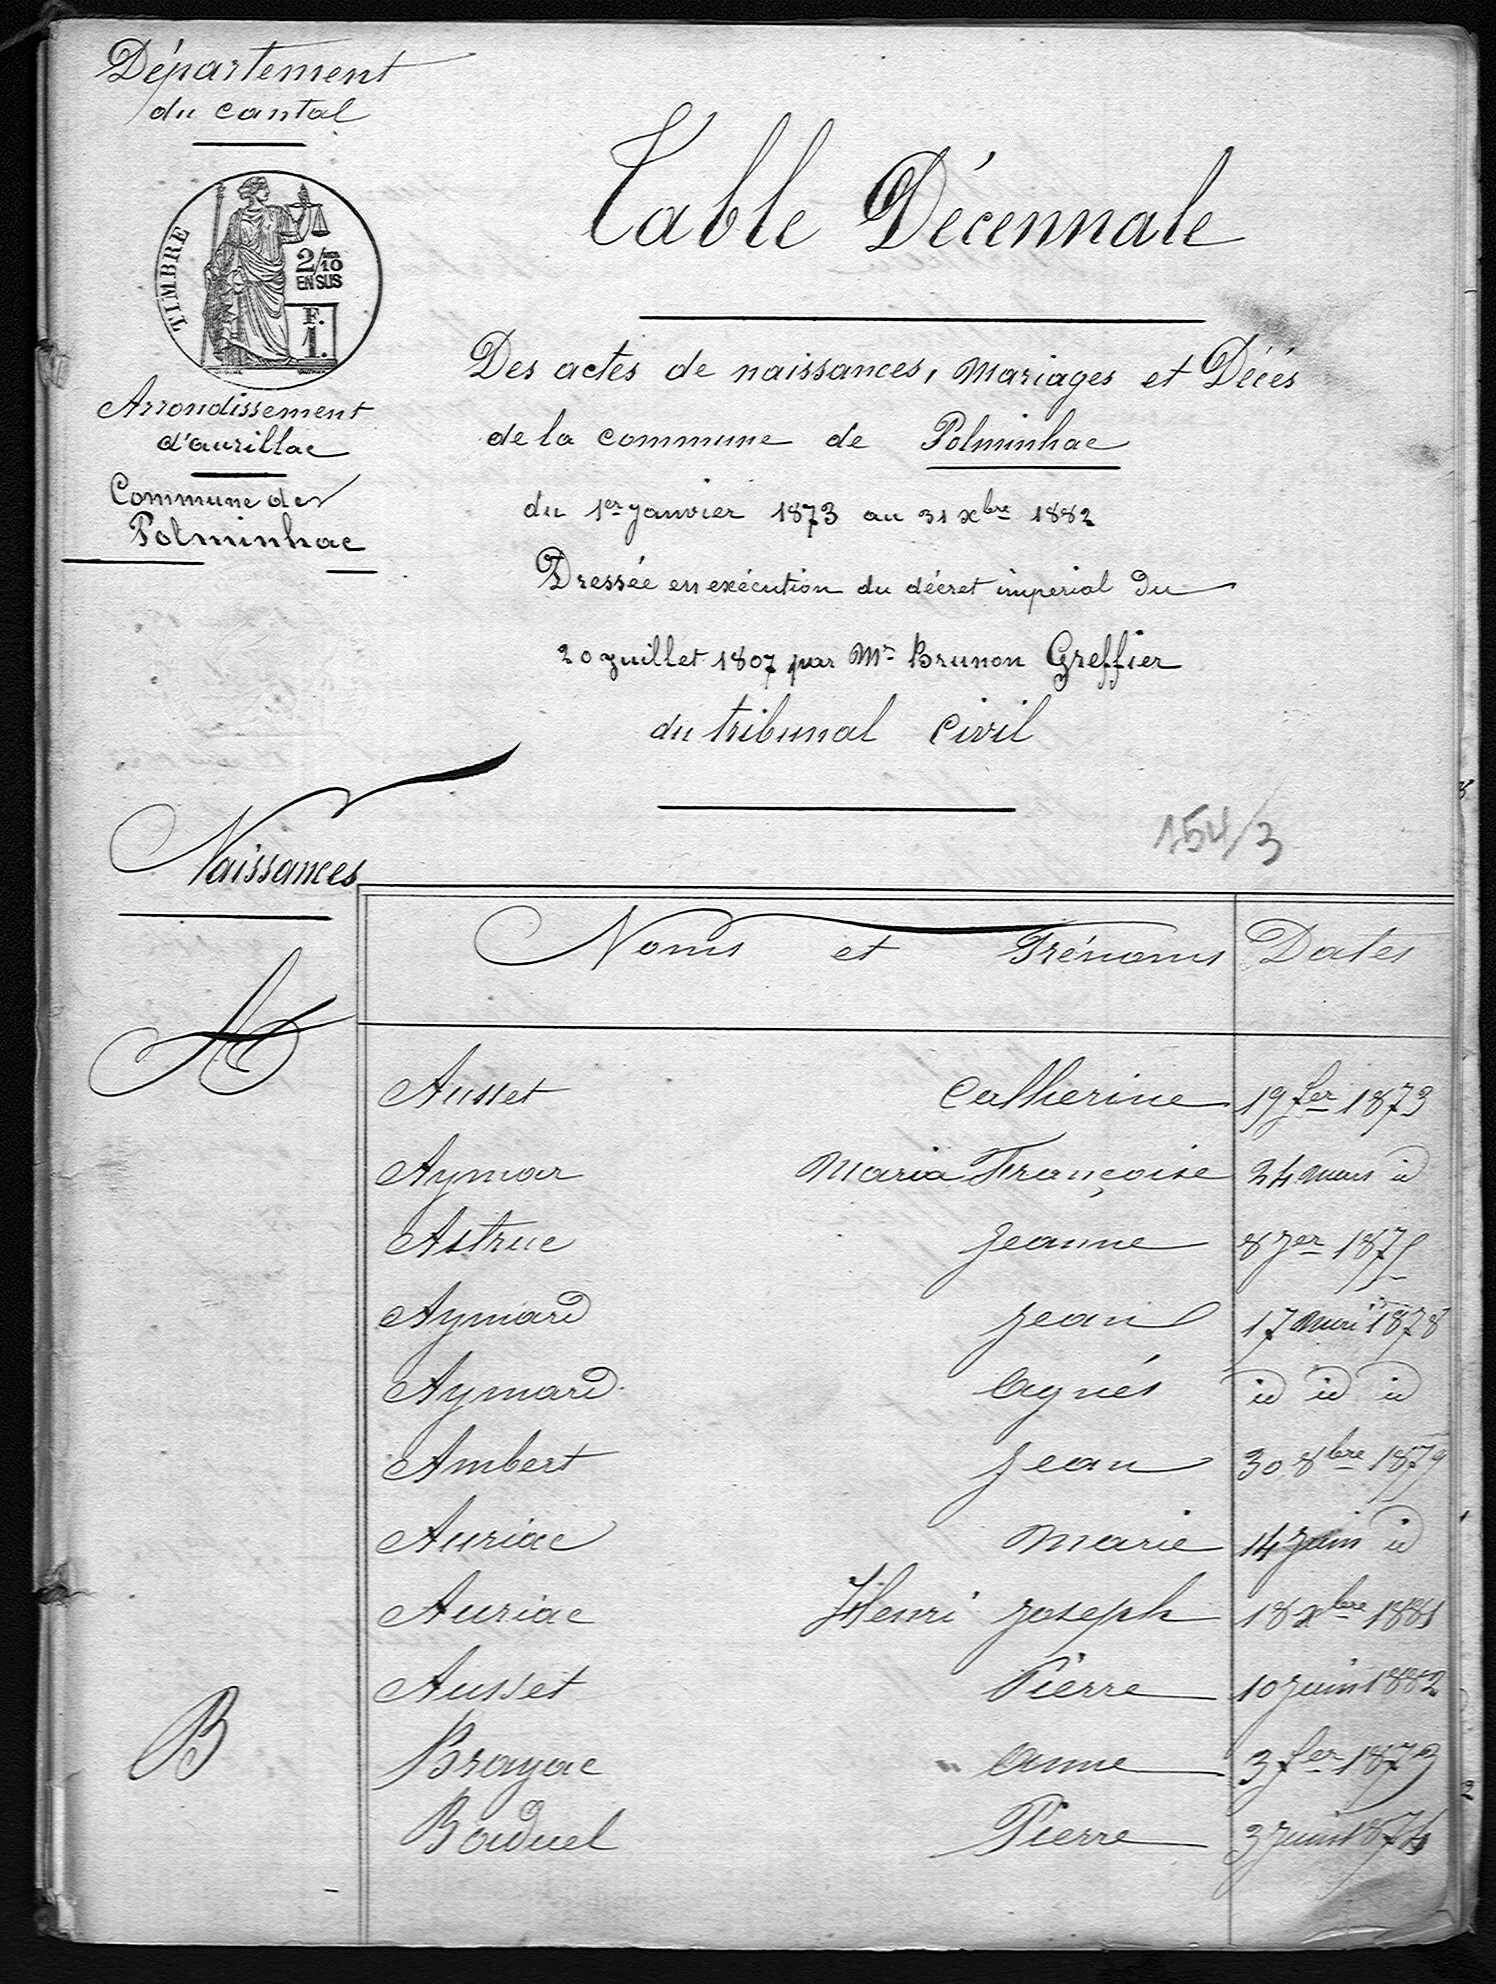 Département
du Cantal
TIMBRE
2/10
EN SUS
F.
1.
Arrondissement
d'aurillac
Commune de
Polminhac
Table Décennale
Des actes de naissances, Mariages et Décés
de la commune de Polminhac
du 1er janvier 1873 au 31 xbre 1882
Dressée en exécution du décret impérial Du
20 juillet 1807 par Mr Brunon Greffier
du tribunal Civil
154/3
Naissances
Noms et Prénoms Dates
A
Ausset Catherine 19 fer 1873
Aymar Maria Françoise 24 mars id
Astruc Jeanne 8 jer 1875
Aymard Jean 17 mai 1878
Aymard Agnés id id id
Ambert Jean 30 8bre 1879
Auriac Marie 14 juin id
Auriac Henri Joseph 18 xbre 1881
Ausset Pierre 10 juin 1882
B
Brayac " anne 3 fer 1873
Bouduel Pierre 3 juin 1874